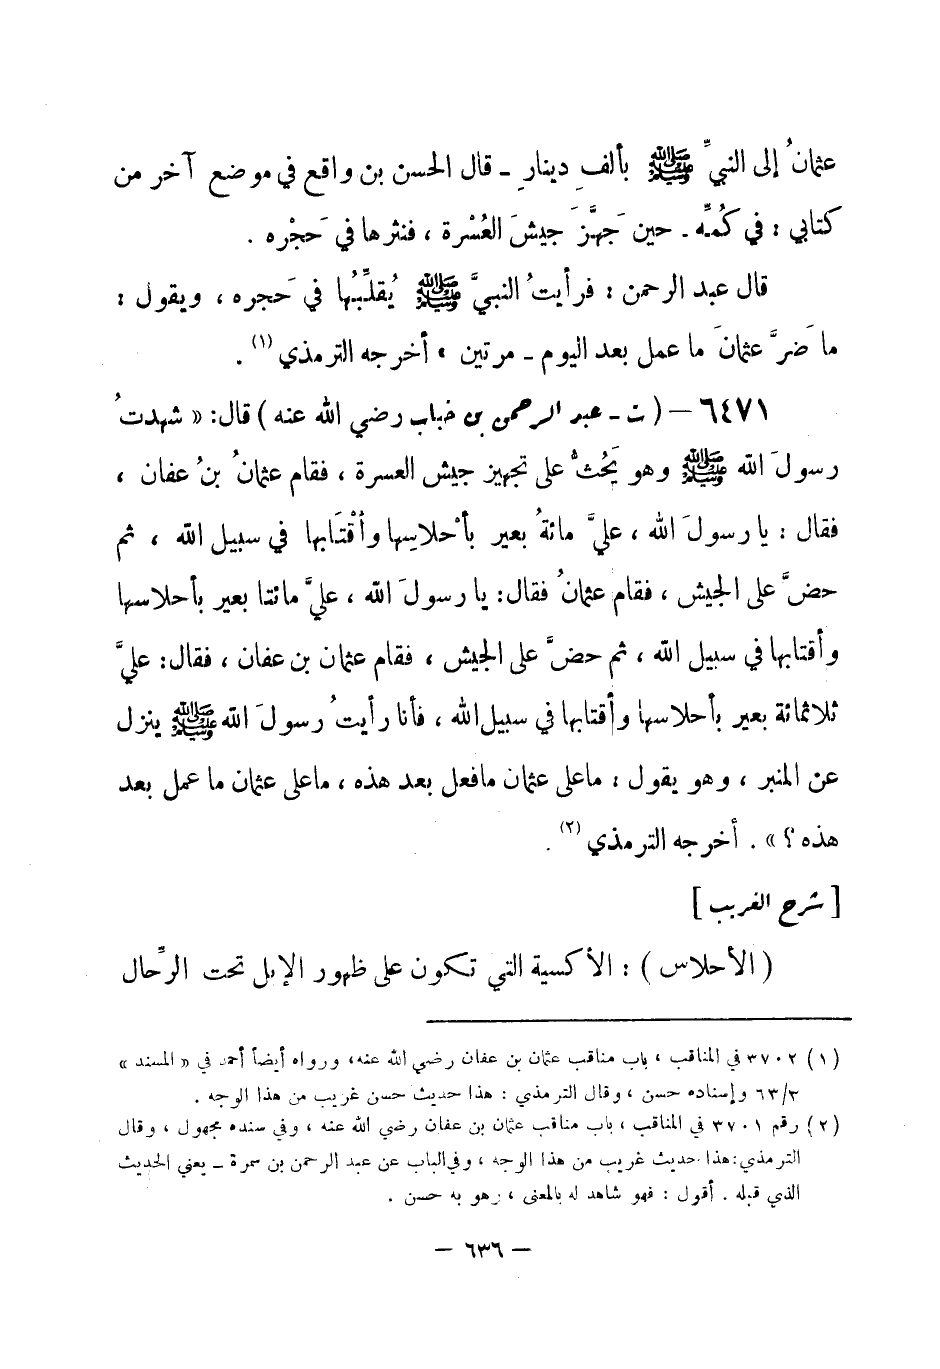 عثمانُ إلى النبيِّ ﷺ بألفِ دينارٍ ـ قال الحسن بن واقع في موضع آخر من
كتابي : في كُمِّه ـ حين جَهَّزَ جيشَ العُسْرة ، فنثرها في حَجْره .
قال عبد الرحمن : فرأيتُ النبيَّ ﷺ يُقلِّبُها في حَجره ، ويقول :
ما ضَرَّ عثمانَ ما عمل بعد اليوم ـ مرتين » أخرجه الترمذي (١) .
٦٤٧١ — ( ت ـ عبد الرحمن بن خباب رضي الله عنه ) قال : « شهدتُ
رسولَ الله ﷺ وهو يَحُثُّ على تجهيز جيش العسرة ، فقام عثمانُ بنُ عفان ،
فقال : يا رسولَ الله ، عليَّ مائةُ بعير بأحْلاسِها وأقْتَابها في سبيل الله ، ثم
حضَّ على الجيش ، فقام عثمانُ فقال : يا رسولَ الله ، عليَّ مائتا بعير بأحلاسها
وأقتابها في سبيل الله ، ثم حضَّ على الجيش ، فقام عثمان بن عفان ، فقال : عليَّ
ثلاثمائة بعير بأحلاسها وأقتابها في سبيل الله ، فأنا رأيتُ رسولَ الله ﷺ ينزل
عن المنبر ، وهو يقول : ما على عثمان ما فعل بعد هذه ، ما على عثمان ما عمل بعد
هذه ؟ » . أخرجه الترمذي (٢) .
[ شرح الغريب ]
( الأحلاس ) : الأكسية التي تكون على ظهور الإبل تحت الرِّحال
(١) ٣٧٠٢ في المناقب ، باب مناقب عثمان بن عفان رضي الله عنه ، ورواه أيضاً أحمد في « المسند »
٦٣/٣ وإسناده حسن ، وقال الترمذي : هذا حديث حسن غريب من هذا الوجه .
(٢) رقم ٣٧٠١ في المناقب ، باب مناقب عثمان بن عفان رضي الله عنه ، وفي سنده مجهول ، وقال
الترمذي : هذا حديث غريب من هذا الوجه ، وفي الباب عن عبد الرحمن بن سمرة ـ يعني الحديث
الذي قبله . أقول : فهو شاهد له بالمعنى ، وهو به حسن .
— ٦٣٦ —